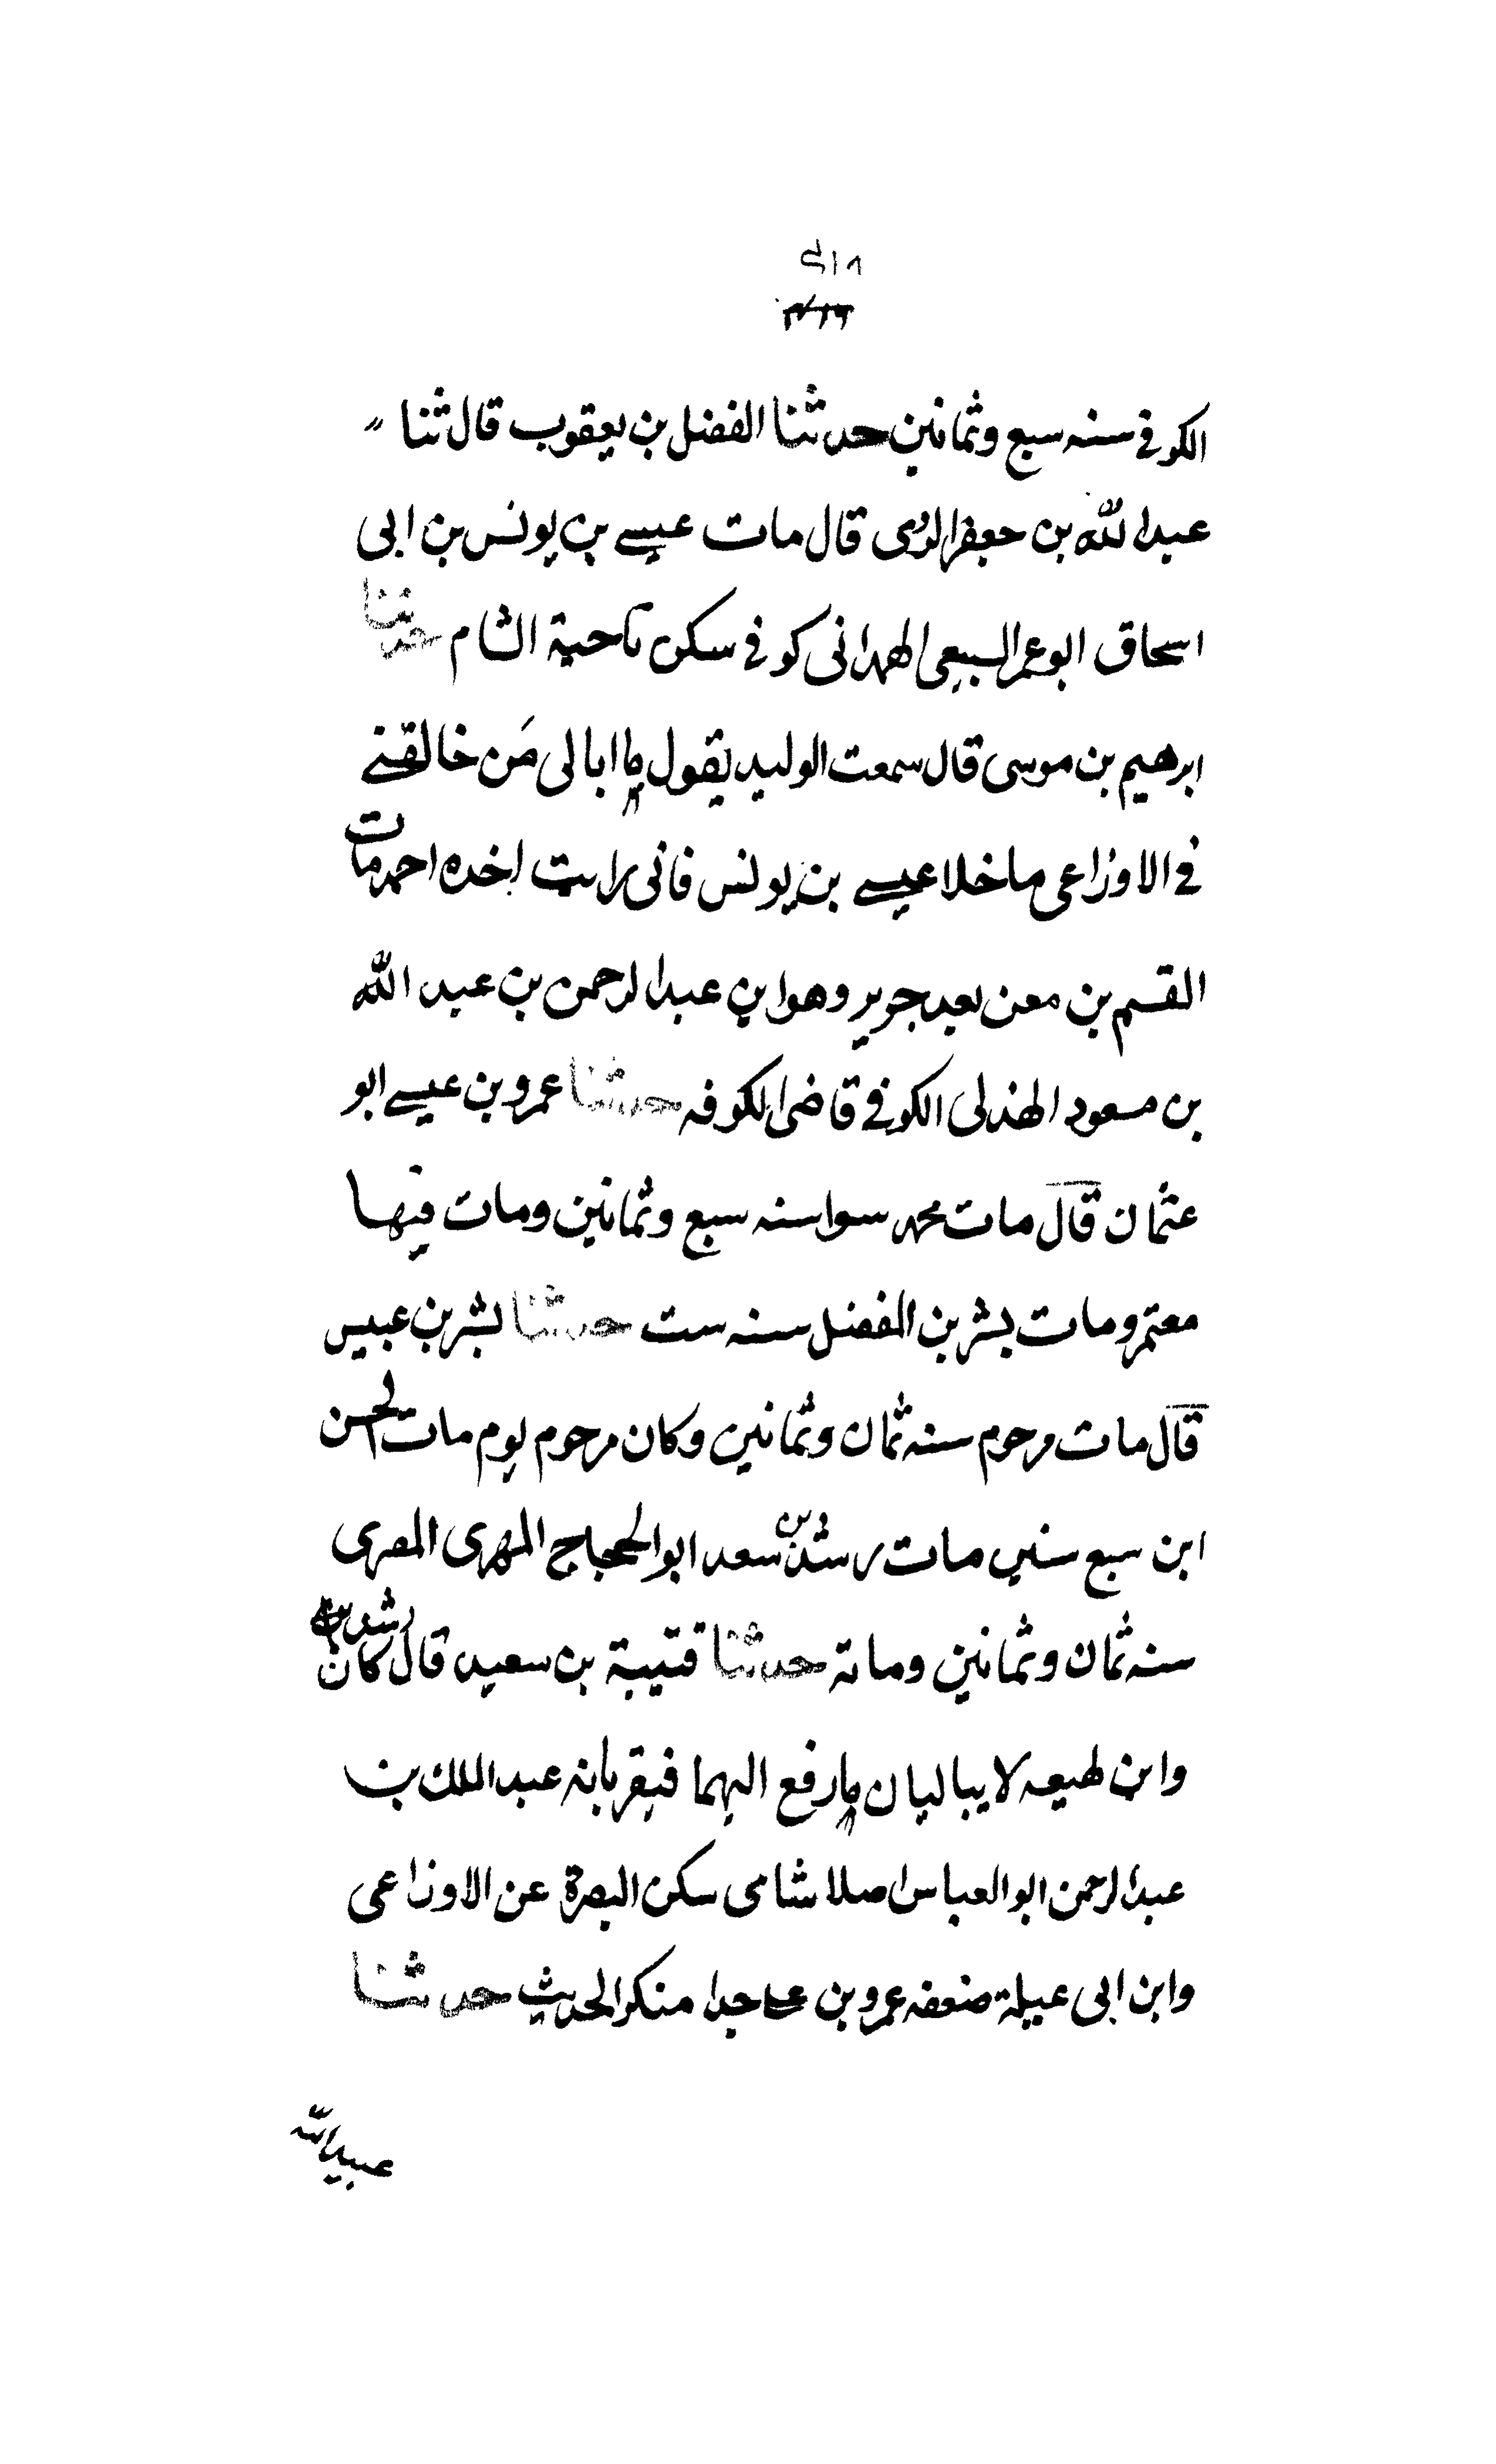 الكوفي سنه سبع وثمانين حدثنا الفضل بن يعقوب قال ثنا
عبد الله بن جعفر الرقى قال مات عيسے بن يونس بن ابى
اسحاق ابو عمر السبيعى الهمدانى كوفي سكن ناحية الشام حدثنا
ابرهيم بن موسى قال سمعت الوليد يقول ما ابالى مَن خالفنے
في الاوزاعى ما خلا عيسے بن يونس فانى رايت اخده احمد مات
القسم بن معن بعد جرير وهو ابن عبد الرحمن بن عبد الله
بن مسعود الهذلى الكوفي قاضى الكوفه حدثنا عمرو بن عيسے ابو
عثمان قال مات محمد سوا سنه سبع وثمانين ومات فيها
معتمر ومات بشر بن المفضل سنه ست حدثنا بشر بن عبيس
قال مات مرحوم سنه ثمان وثمانين وكان مرحوم يوم مات الحسن
ابن سبع سنين مات رشدين بن سعد ابو الحجاج المهرى المصرى
سنه ثمان وثمانين ومائة حدثنا قتيبة بن سعيد قال كان رشدين
وابن لهيعه لا يباليان ما رفع اليهما فيقربانه عبد الملك بن
عبد الرحمن ابو العباس اصلا شامى سكن البصرة عن الاوزاعى
وابن ابى عبلة ضعفه عمرو بن على جدا منكر الحديث حدثنا
عبيد الله